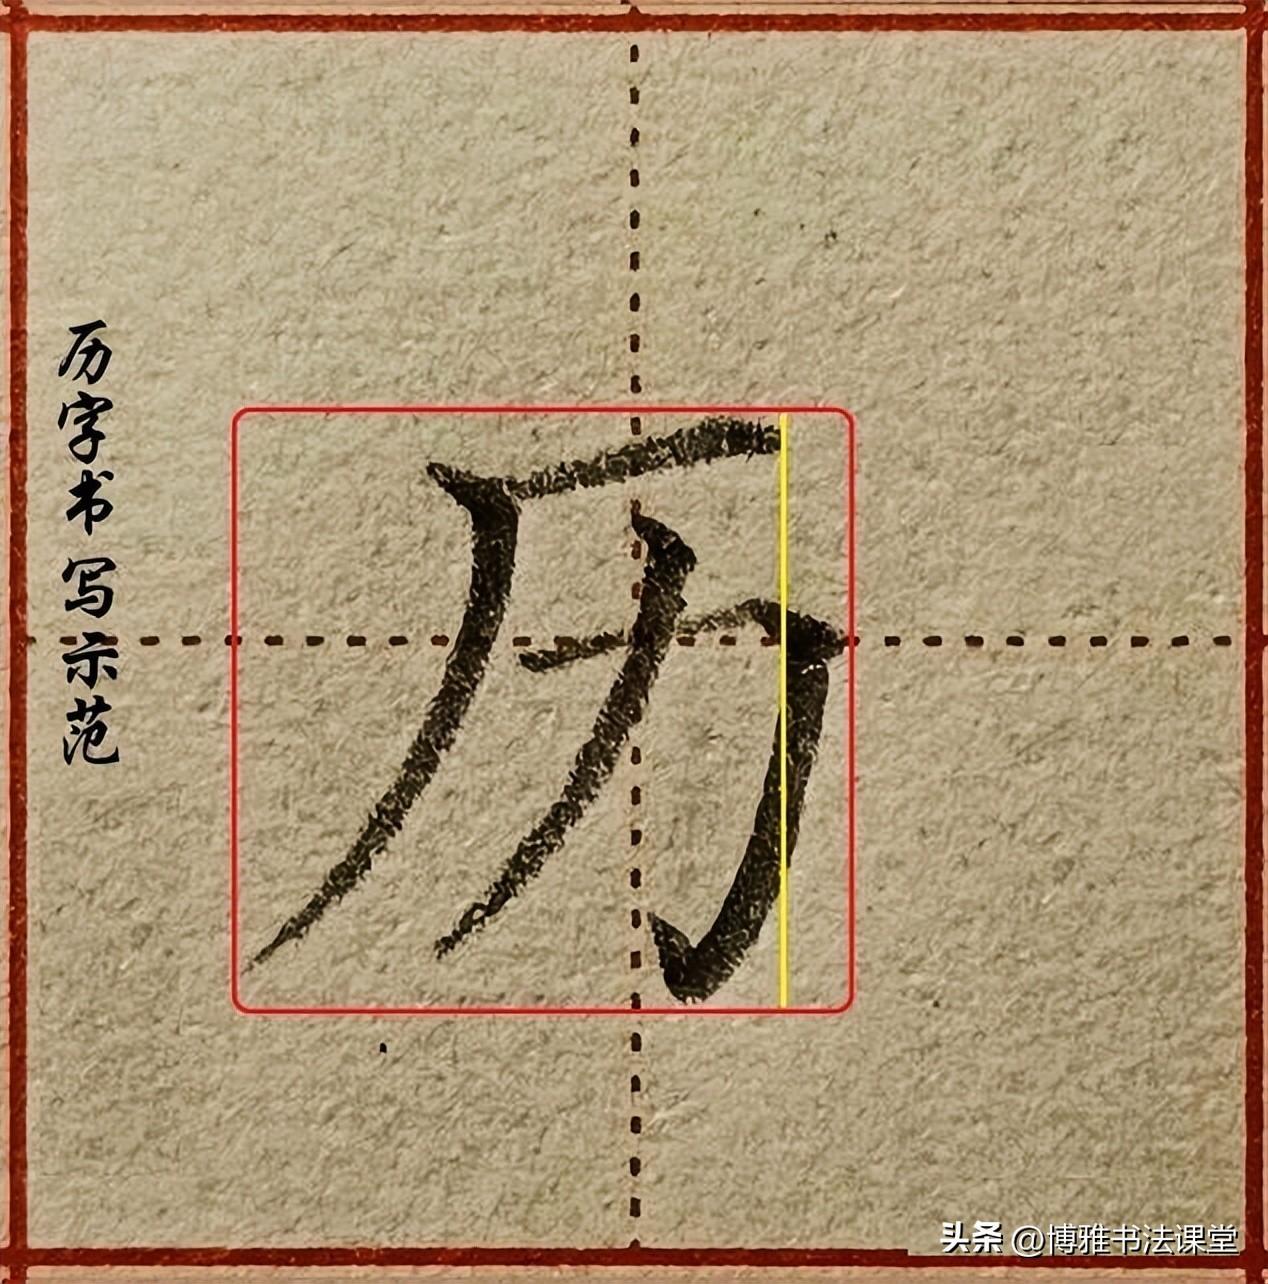 历字书写示范
历
头条 @博雅书法课堂